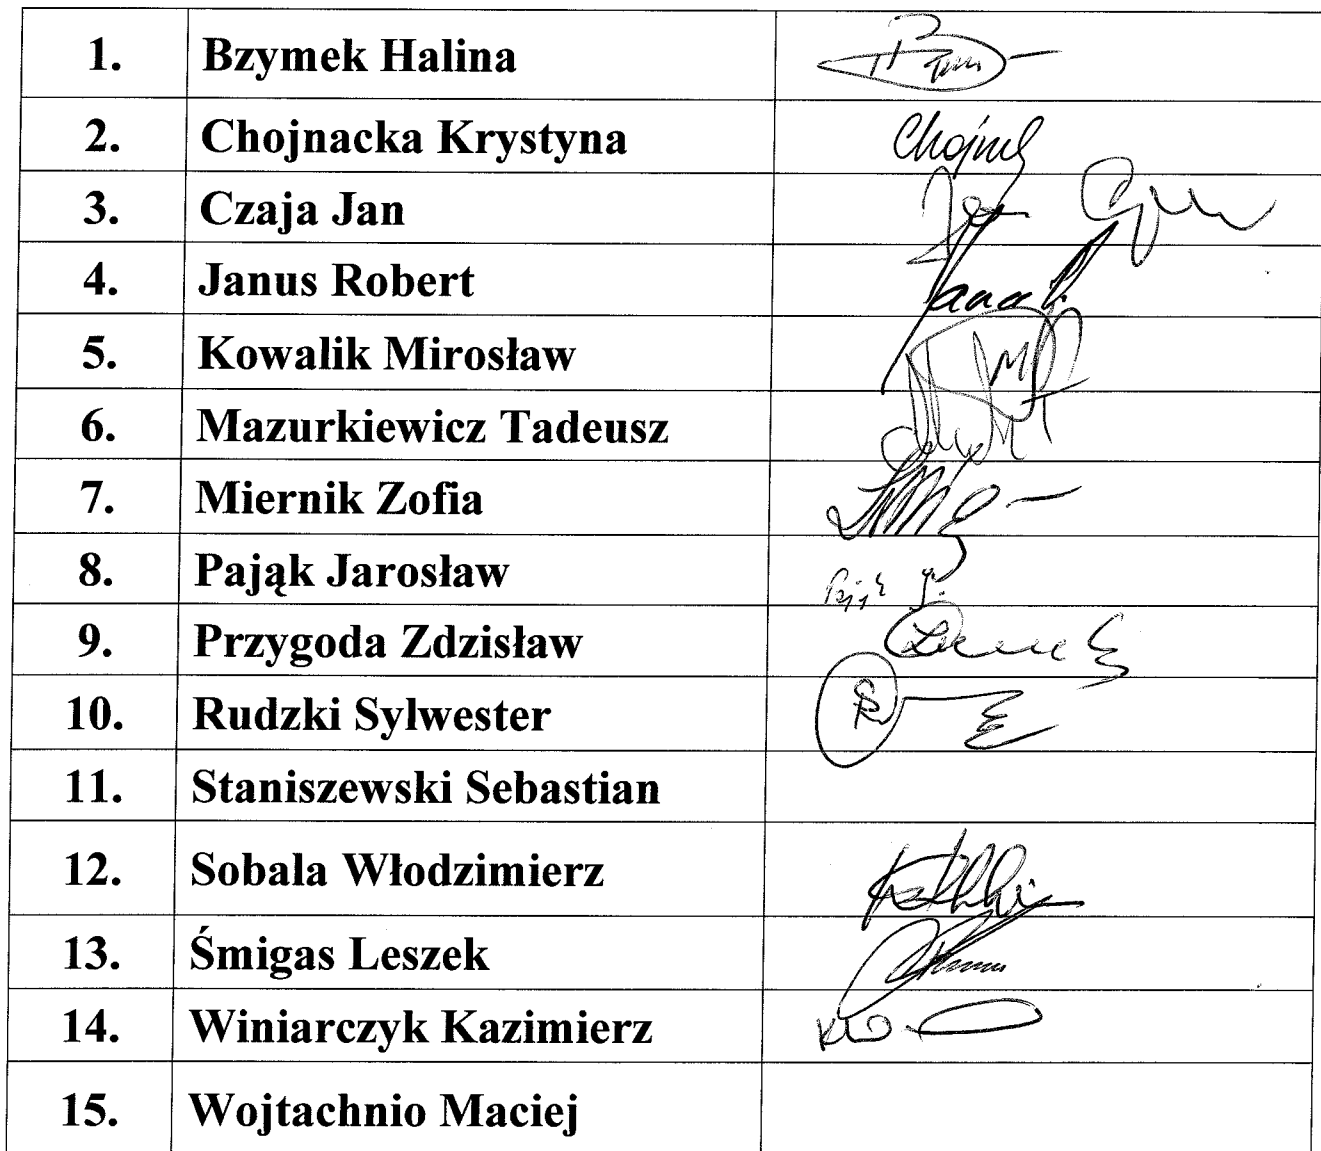 1. Bzymek Halina
2. Chojnacka Krystyna Chojnac
3. Czaja Jan Jan
4. Janus Robert
5. Kowalik Mirosław
6. Mazurkiewicz Tadeusz
7. Miernik Zofia
8. Pająk Jarosław Pająk J.
9. Przygoda Zdzisław
10. Rudzki Sylwester
11. Staniszewski Sebastian
12. Sobala Włodzimierz
13. Śmigas Leszek
14. Winiarczyk Kazimierz
15. Wojtachnio Maciej